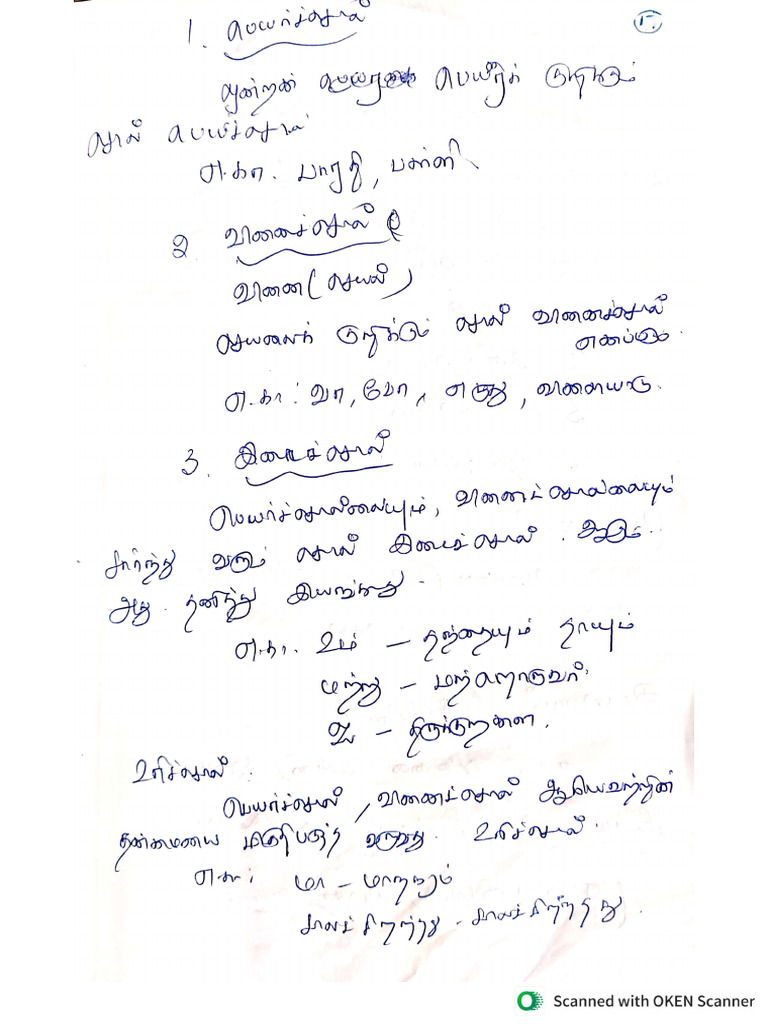 1. பெயர்ச்சொல்
ஒன்றன் பெயரைக் குறிக்கும்
சொல் பெயர்ச்சொல்
எ.கா. பாரதி, பள்ளி
2. வினைச்சொல்
வினை (செயல்)
செயலைக் குறிக்கும் சொல் வினைச்சொல்
எனப்படும்.
எ.கா : வா, போ, எழுது, விளையாடு.
3. இடைச்சொல்
பெயர்ச்சொல்லையும், வினைச்சொல்லையும்
சார்ந்து வரும் சொல் இடைச்சொல் ஆகும்.
அது தனித்து இயங்காது.
எ.கா. உம் – தந்தையும் தாயும்
மற்று – மற்றொருவர்
ஐ – திருக்குறளை.
உரிச்சொல்.
பெயர்ச்சொல், வினைச்சொல் ஆகியவற்றின்
தன்மையை மிகுதிபடுத்த வருவது உரிச்சொல்.
எ.கா: மா – மாநகரம்
சாலச்சிறந்தது.
Scanned with OKEN Scanner